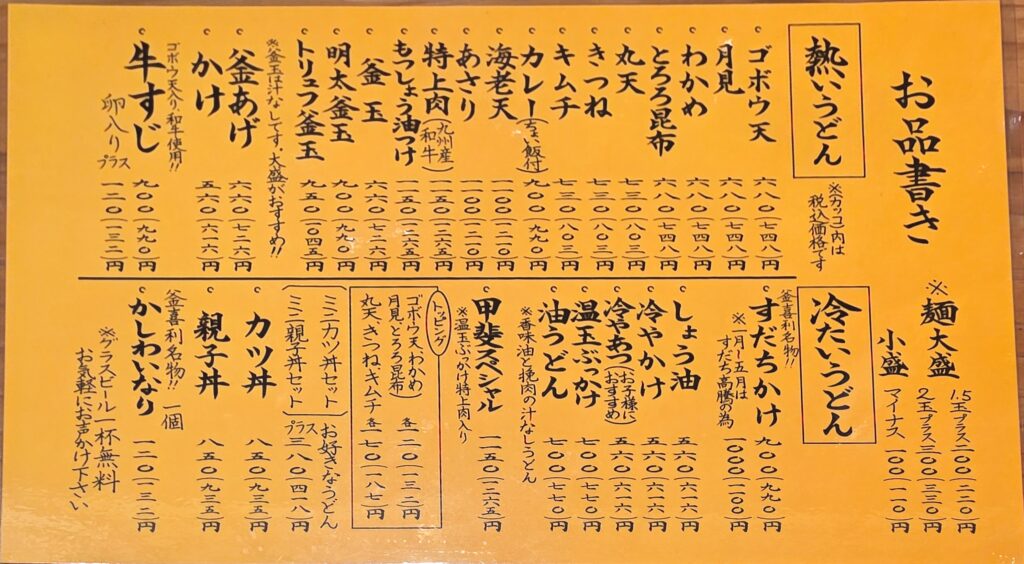 お品書き
※カッコ内は
税込価格です
※麺大盛
1.5玉プラス二〇〇(二二〇)円
2玉プラス三〇〇(三三〇)円
小盛
マイナス一〇〇(一一〇)円
熱いうどん
ゴボウ天 六八〇(七四八)円
月見 六八〇(七四八)円
わかめ 六八〇(七四八)円
とろろ昆布 六八〇(七四八)円
丸天 七三〇(八〇三)円
きつね 七三〇(八〇三)円
キムチ 七三〇(八〇三)円
カレー(ちょい飯付) 九〇〇(九九〇)円
海老天 一一〇〇(一二一〇)円
あさり 一一〇〇(一二一〇)円
特上肉(九州産和牛) 一一五〇(一二六五)円
もつしょう油つけ 一一五〇(一二六五)円
釜玉 六六〇(七二六)円
明太釜玉 九〇〇(九九〇)円
トリュフ釜玉 九五〇(一〇四五)円
※釜玉は汁なしです。大盛がおすすめ!!
釜あげ 六六〇(七二六)円
かけ 五六〇(六一六)円
ゴボウ天入り、和牛使用!!
牛すじ 九〇〇(九九〇)円
卵入りプラス 一二〇(一三二)円
冷たいうどん
釜喜利名物!!
すだちかけ 九〇〇(九九〇)円
※一月〜五月は
すだち高騰の為
一〇〇〇(一一〇〇)円
しょう油 五六〇(六一六)円
冷やかけ 五六〇(六一六)円
冷やあつ(お子様におすすめ) 五六〇(六一六)円
温玉ぶっかけ 七〇〇(七七〇)円
油うどん 七〇〇(七七〇)円
※香味油と挽肉の汁なしうどん
甲斐スペシャル 一一五〇(一二六五)円
※温玉ぶっかけ特上肉入り
トッピング
ゴボウ天わかめ
月見、とろろ昆布 各一二〇(一三二)円
丸天、きつね、キムチ 各一七〇(一八七)円
ミニカツ丼セット
ミニ親子丼セット
お好きなうどん
プラス三八〇(四一八)円
カツ丼 八五〇(九三五)円
親子丼 八五〇(九三五)円
釜喜利名物!! 一個
かしわいなり 一二〇(一三二)円
※グラスビール一杯無料
お気軽にお声かけ下さい